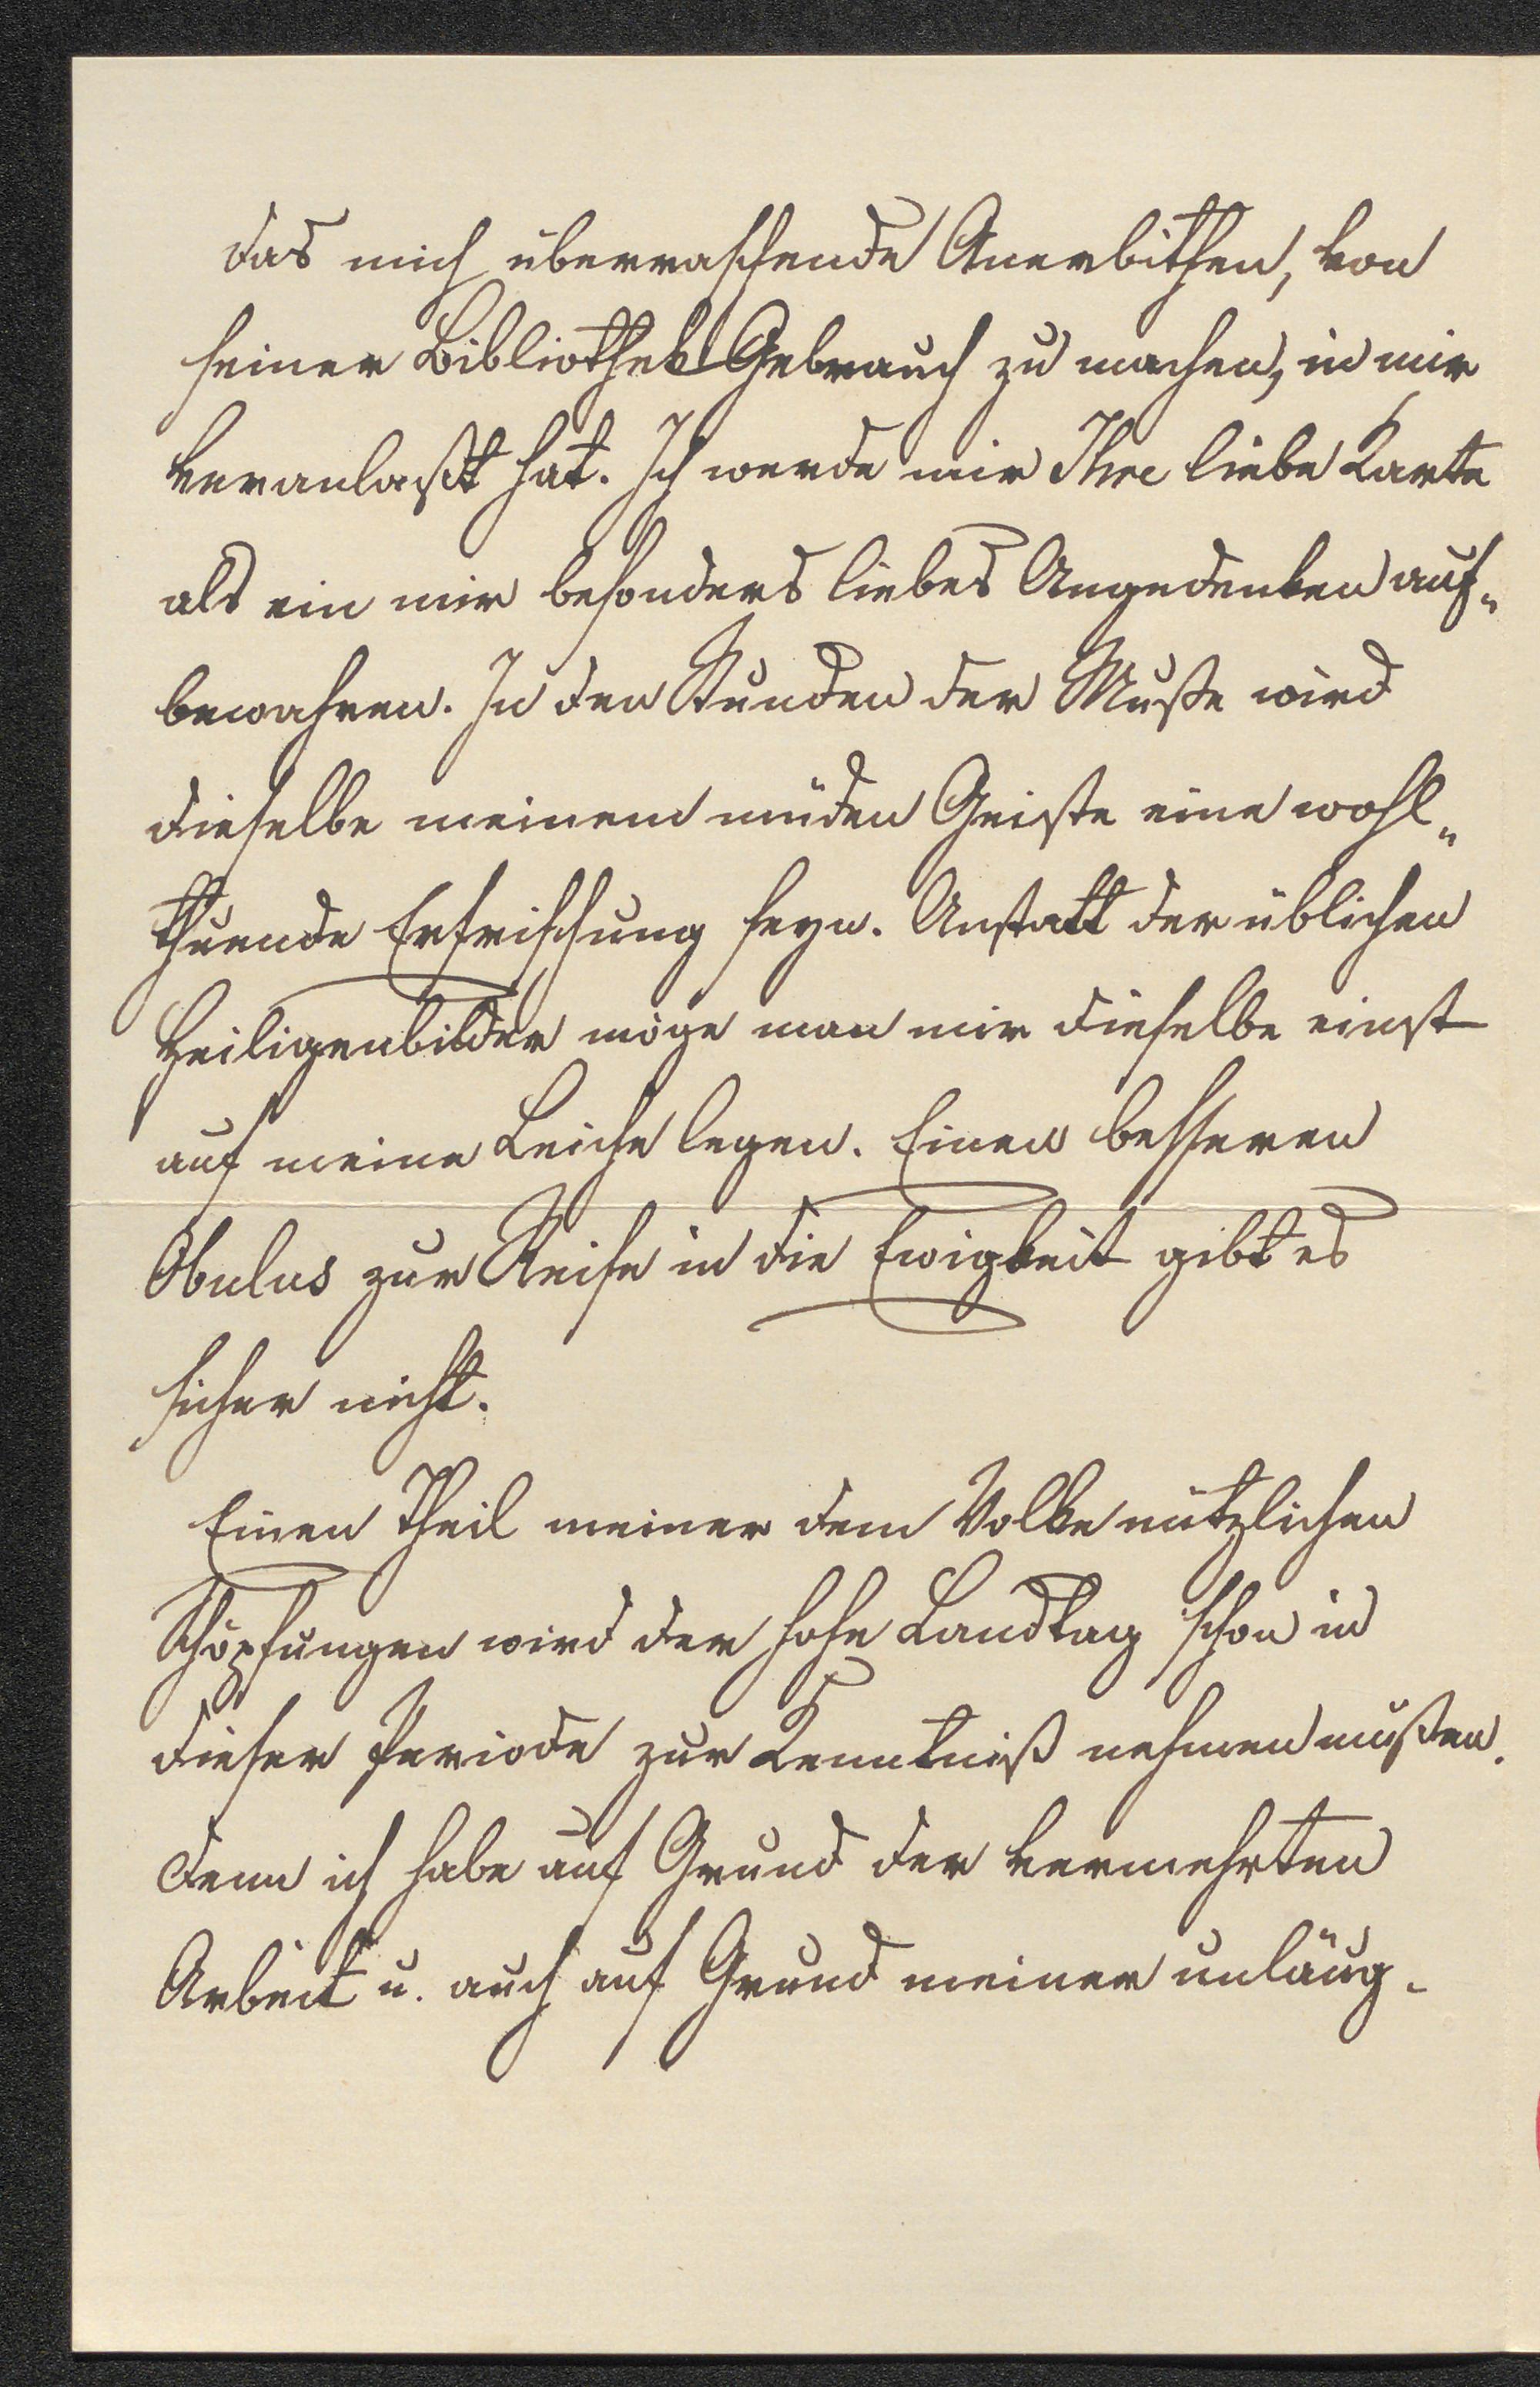 das mich überraschende Anerbithen, von
seiner Bibliothek Gebrauch zu machen, in mir
veranlaßt hat. Ich werde mir Ihre liebe Karte
als ein mir besonders liebes Angedenken auf„
bewahren. In den Stunden der Muße wird
dieselbe meinem müden Geiste eine wohl„
thuende Erfrischung seyn. Anstatt der üblichen
Heiligenbilder möge man mir dieselbe einst
auf meine Leiche legen. Einen besseren
Obulus zur Reise in die Ewigkeit gibt es
sicher nicht.
Einen Theil meiner dem Volke nützlichen
Schöpfungen wird der hohe Landtag schon in
dieser Periode zur Kenntniß nehmen mußen.
Denn ich habe auf Grund der vermehrten
Arbeit u. auch auf Grund meiner unläug-